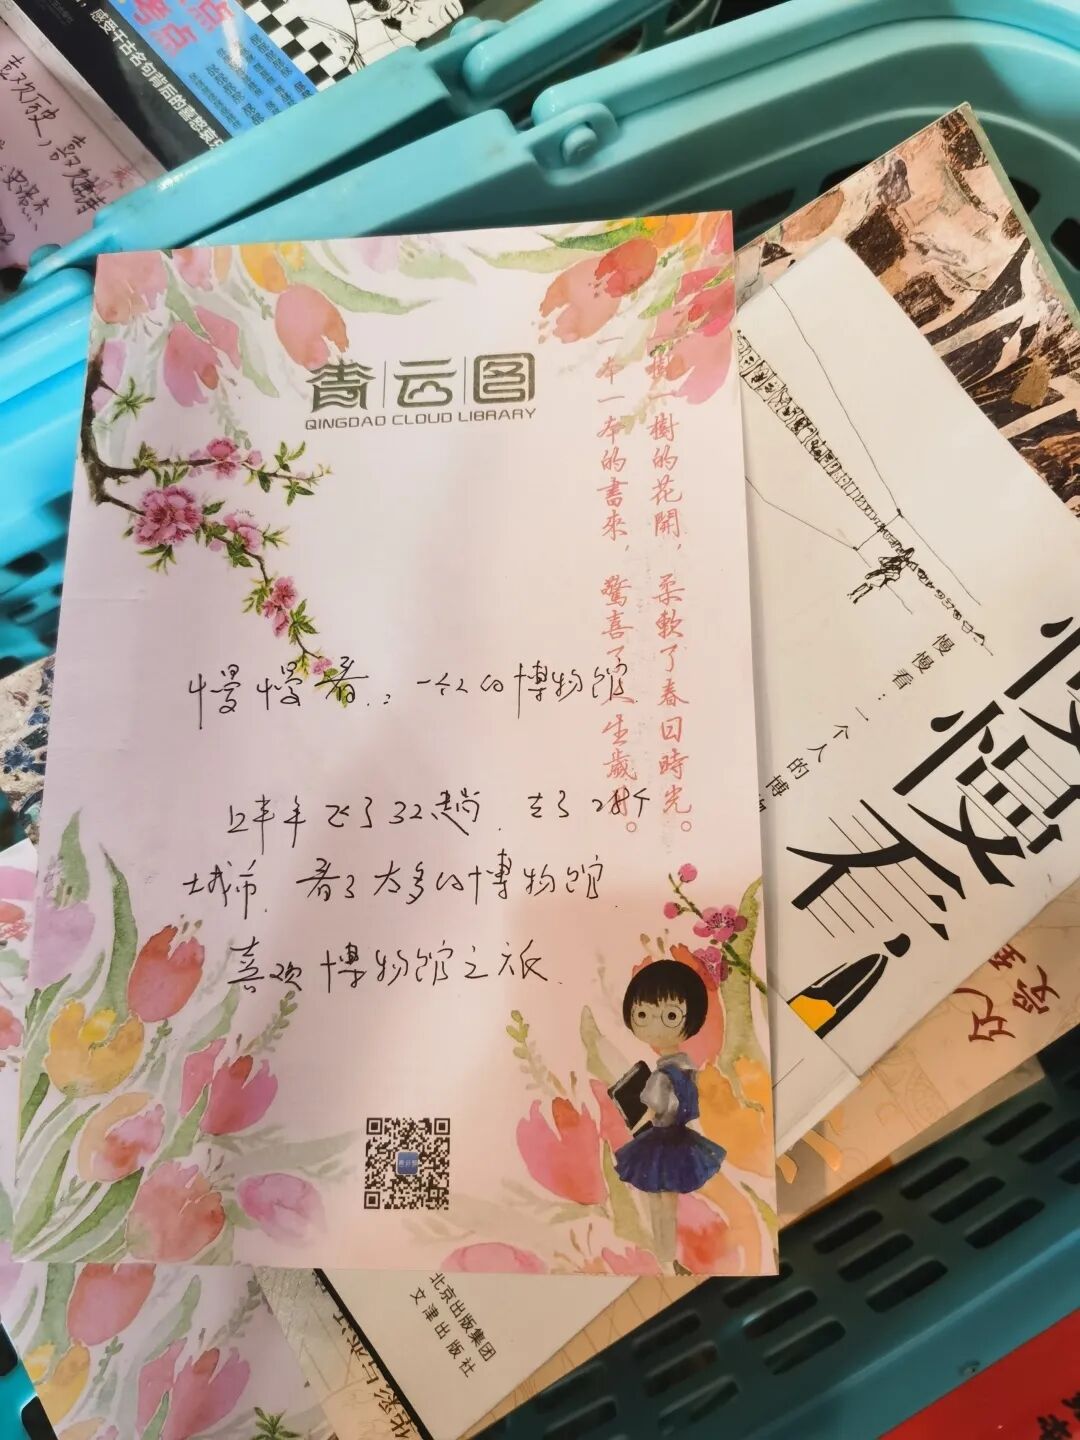 点
考点
感受千古名句背后的喜怒哀
喜欢历史，喜欢
青云图
QINGDAO CLOUD LIBRARY
一樹一樹的花開，柔軟了春回時光。
一本一本的書來，驚喜了人生歲月。
慢慢看：一个人的博物馆
上半年飞了32趟.去了28个
城市.看了太多的博物馆.
喜欢博物馆之旅.
慢慢看：一个人的博
慢慢看
北京出版集团
文津出版社